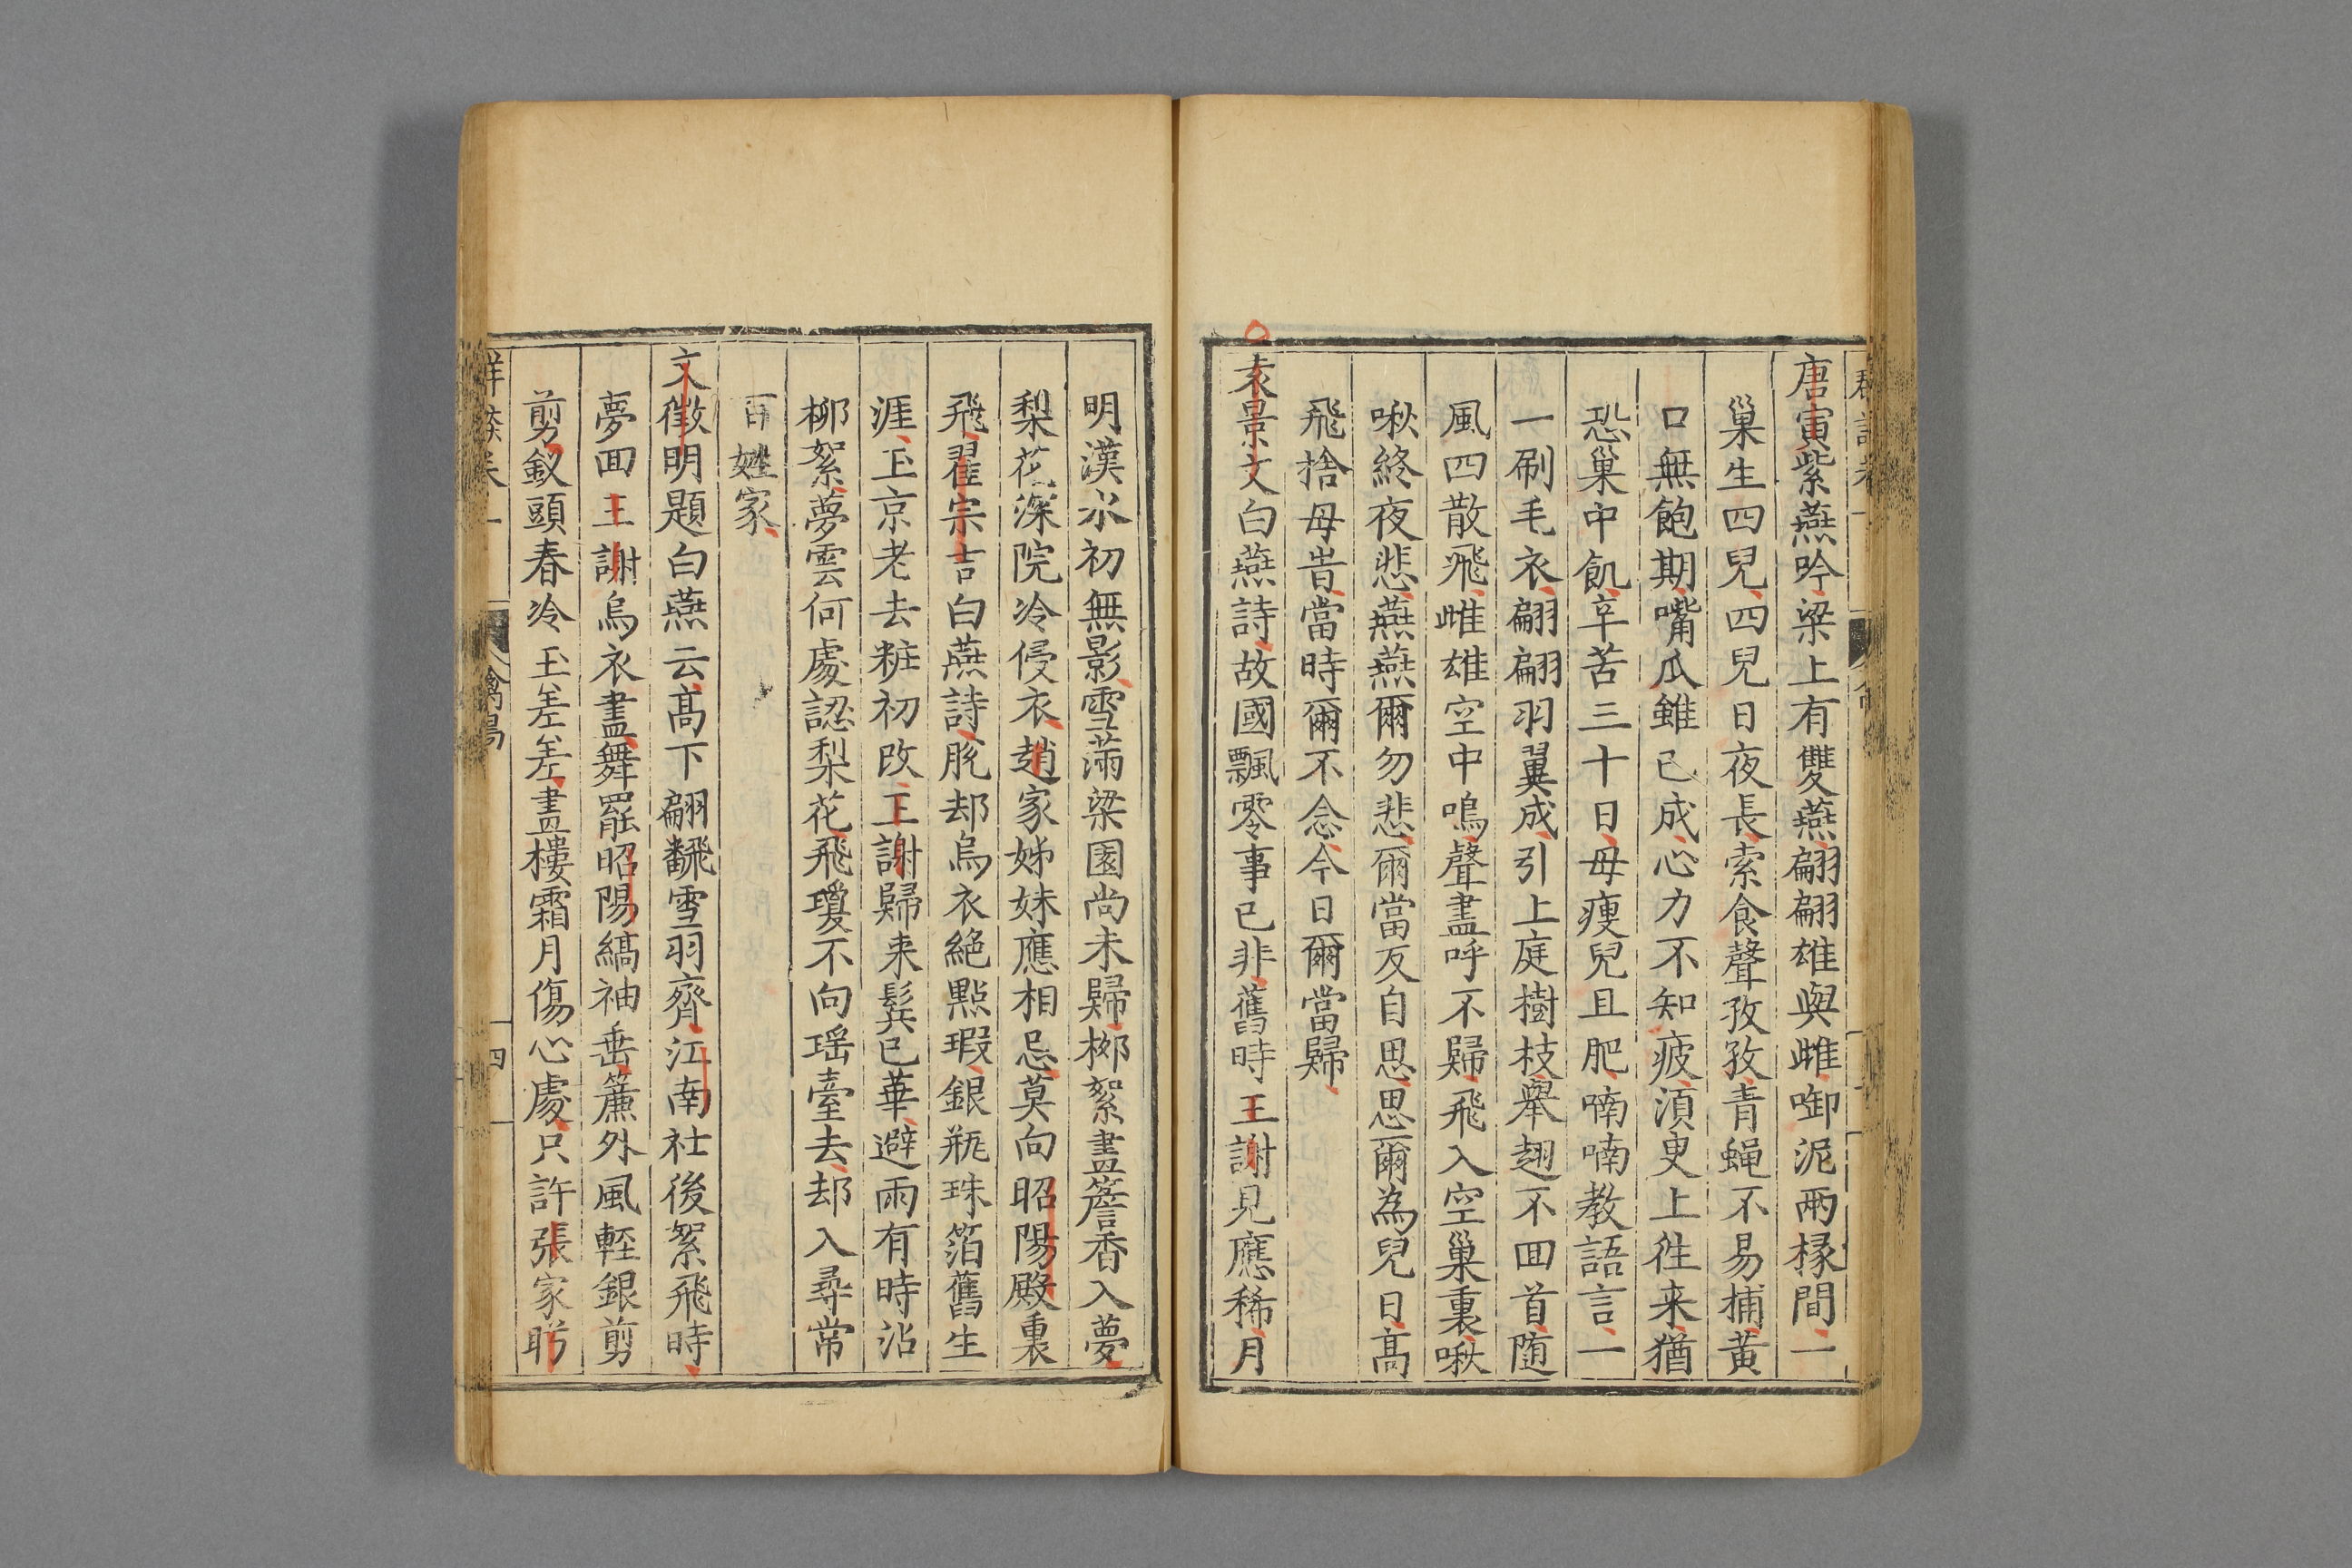 唐寅紫燕吟梁上有雙燕翩翩雄與雌啣泥兩椽間一
巢生四兒四兒日夜長索食聲孜孜青蝇不易捕黃
口無飽期嘴瓜雖已成心力不知疲湏臾上徃来猶
恐巢中飢辛苦三十日母瘦兒且肥喃喃教語言一
一刷毛衣翩翩羽翼成引上庭樹枝舉翅不囬首随
風四散飛雌雄空中鳴聲盡呼不歸飛入空巢裏啾
啾終夜悲燕燕爾勿悲爾當反自思思爾為兒日高
飛捨母旹當時爾不念今日爾當歸
袁景文白燕詩故國飄零事已非舊時王謝見應稀月
明漢水初無影雪滿梁園尚未歸栁絮晝簷香入夢
梨花深院冷侵衣趙家姊妹應相忌莫向昭陽殿裏
飛瞿宗吉白燕詩脫却烏衣絶㸃瑕銀瓶珠箔舊生
涯玉京老去粧初改王謝歸来鬂已華避雨有時沾
柳絮夢雲何處認梨花飛瓊不向瑶臺去却入尋常
百姓家
文徵明題白燕云高下翩飜雪羽齊江南社後絮飛時
夢囬王謝烏衣盡舞罷昭陽縞袖垂簾外風輕銀剪
剪釵頭春冷玉差差畫樓霜月傷心處只許張家盻
四